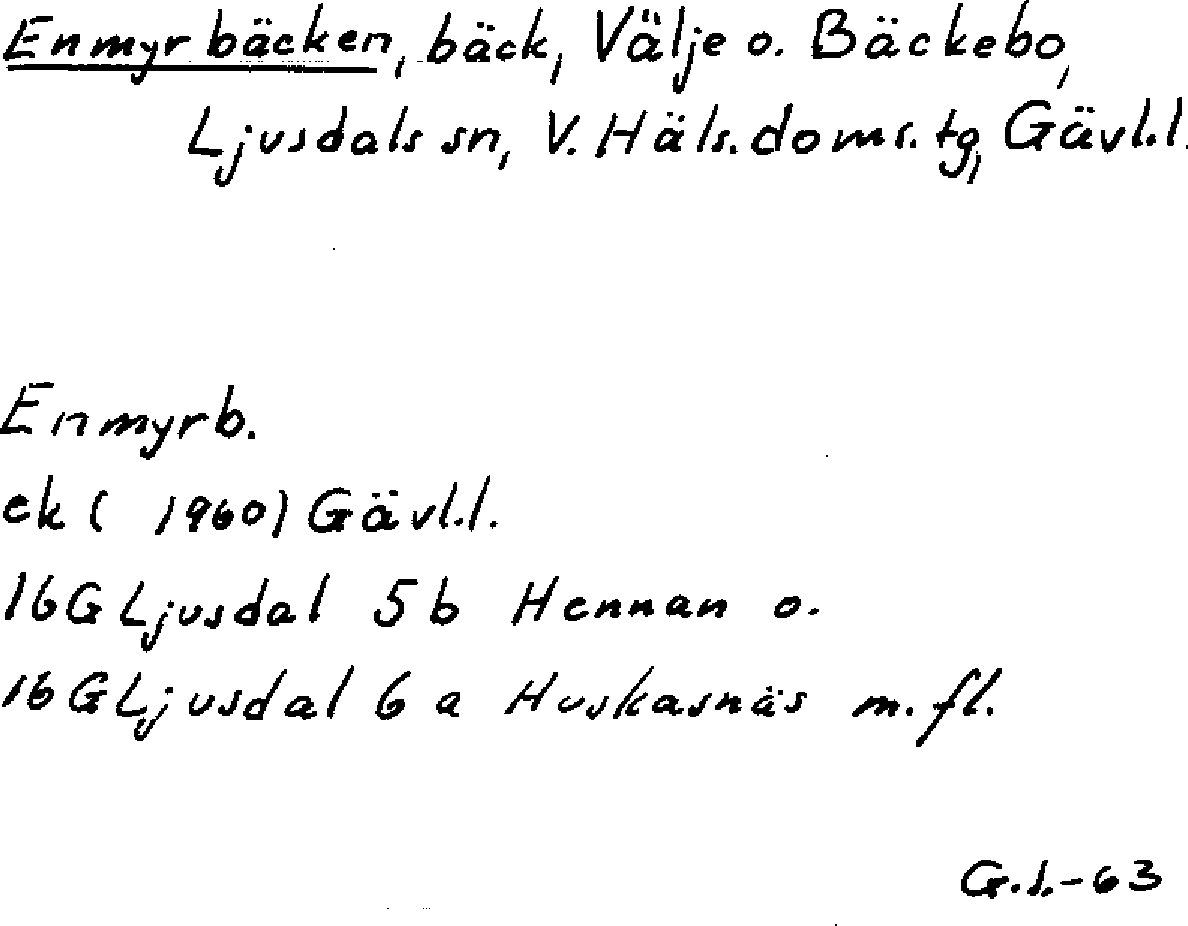 Enmyrbäcken, bäck, Välje o. Bäckebo,
Ljusdals sn, V. Häls. doms. tg, Gävl.l.
Enmyrb.
ek ( 1960) Gävl.l.
16G Ljusdal 5 b Hennan o.
16G Ljusdal 6 a Huskasnäs m.fl.
G.S.-63